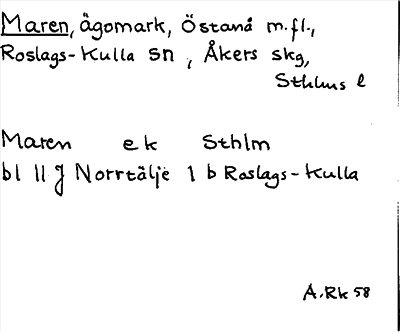 Maren, ägomark, Östanå m.fl.,
Roslags-Kulla sn, Åkers skg,
Sthlms l
Maren ek Sthlm
bl 11 J Norrtälje 1 b Roslags-Kulla
A.Rk 58